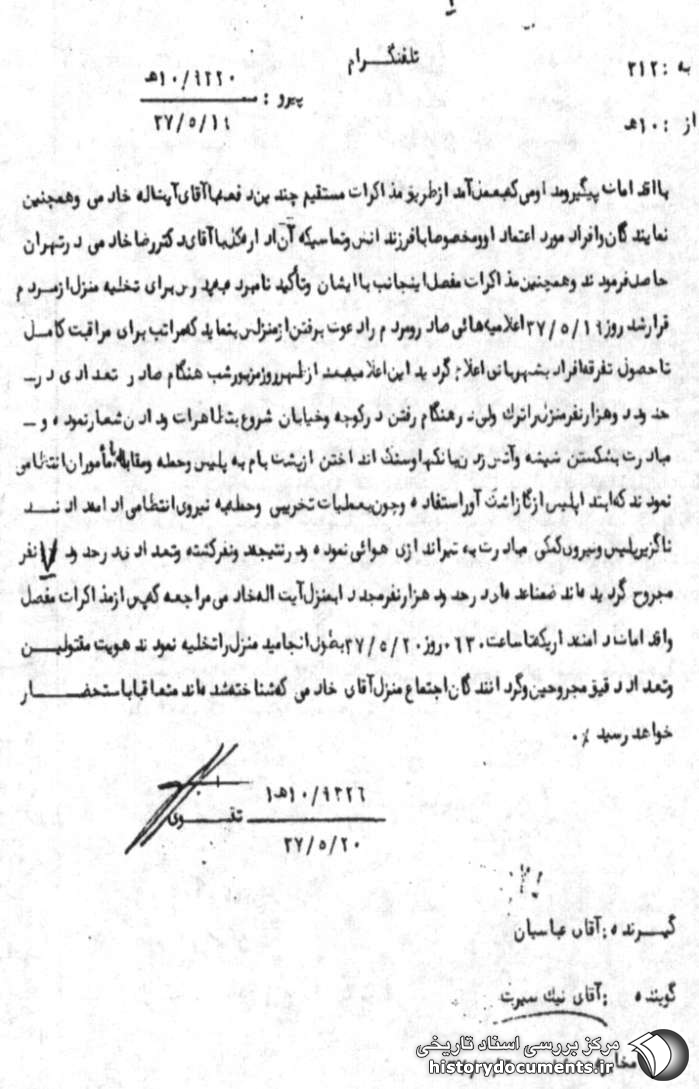 تلفنگرام
به : ۳۱۲
از : ۱۰هـ
پیرو : ۱۰/۹۲۲۰هـ
۳۷/۵/۱۹
با اقدامات پیگیر و مداومی که بعمل آمد از طریق مذاکرات مستقیم چندین دفعه با آقای آیت اله خادمی و همچنین
نمایندگان و افراد مورد اعتماد او و مخصوصا با فرزندانش و تماسیکه آن اداره کل با آقای دکتر رضا خادمی در تهران
حاصل فرمودند و همچنین مذاکرات مفصل اینجانب با ایشان و تأکید نامبرده به پدرش برای تخلیه منزل از مردم
قرار شد روز ۳۷/۵/۱۹ اعلامیه‌هائی صادر و مردم را دعوت برفتن از منزلش بنماید که مراتب برای مراقبت کامل
تا حصول تفرقه افراد بشهربانی اعلام گردید این اعلامیه بعد از ظهر روز مزبور شب هنگام صادر تعدادی در ــ
حدود دو هزار نفر منزل را ترک ولی در هنگام رفتن در کوچه و خیابان شروع بتظاهرات و دادن شعار نموده و ــ
مبادرت بشکستن شیشه و آتش زدن بانکها و سنگ انداختن از پشت بام به پلیس و حمله و مقابله با مأموران انتظامی
نمودند که ابتدا پلیس از گاز اشک آور استفاده و چون بعملیات تخریبی و حمله به نیروی انتظامی ادامه دادند
ناگزیر پلیس و نیروی کمکی مبادرت به تیراندازی هوائی نموده و در نتیجه دو نفر کشته و تعدادی در حدود ۷ نفر
مجروح گردیده‌اند ضمنا عده‌ای در حدود هزار نفر مجددا بمنزل آیت اله خادمی مراجعه که پس از مذاکرات مفصل
و اقدامات دامنه‌داریکه تا ساعت ۰۶۳۰ روز ۳۷/۵/۲۰ بطول انجامید منزل را تخلیه نمودند هویت مقتولین
و تعداد دقیق مجروحین و گردانندگان اجتماع منزل آقای خادمی که شناخته شده‌اند متعاقبا باستحضار
خواهد رسید ٪۰
۱۰/۹۲۲۶هـ۱
تقوی
۳۷/۵/۲۰
گیرنده : آقای عباسیان
گوینده : آقای نیک سیرت
مرکز بررسی اسناد تاریخی
historydocuments.ir